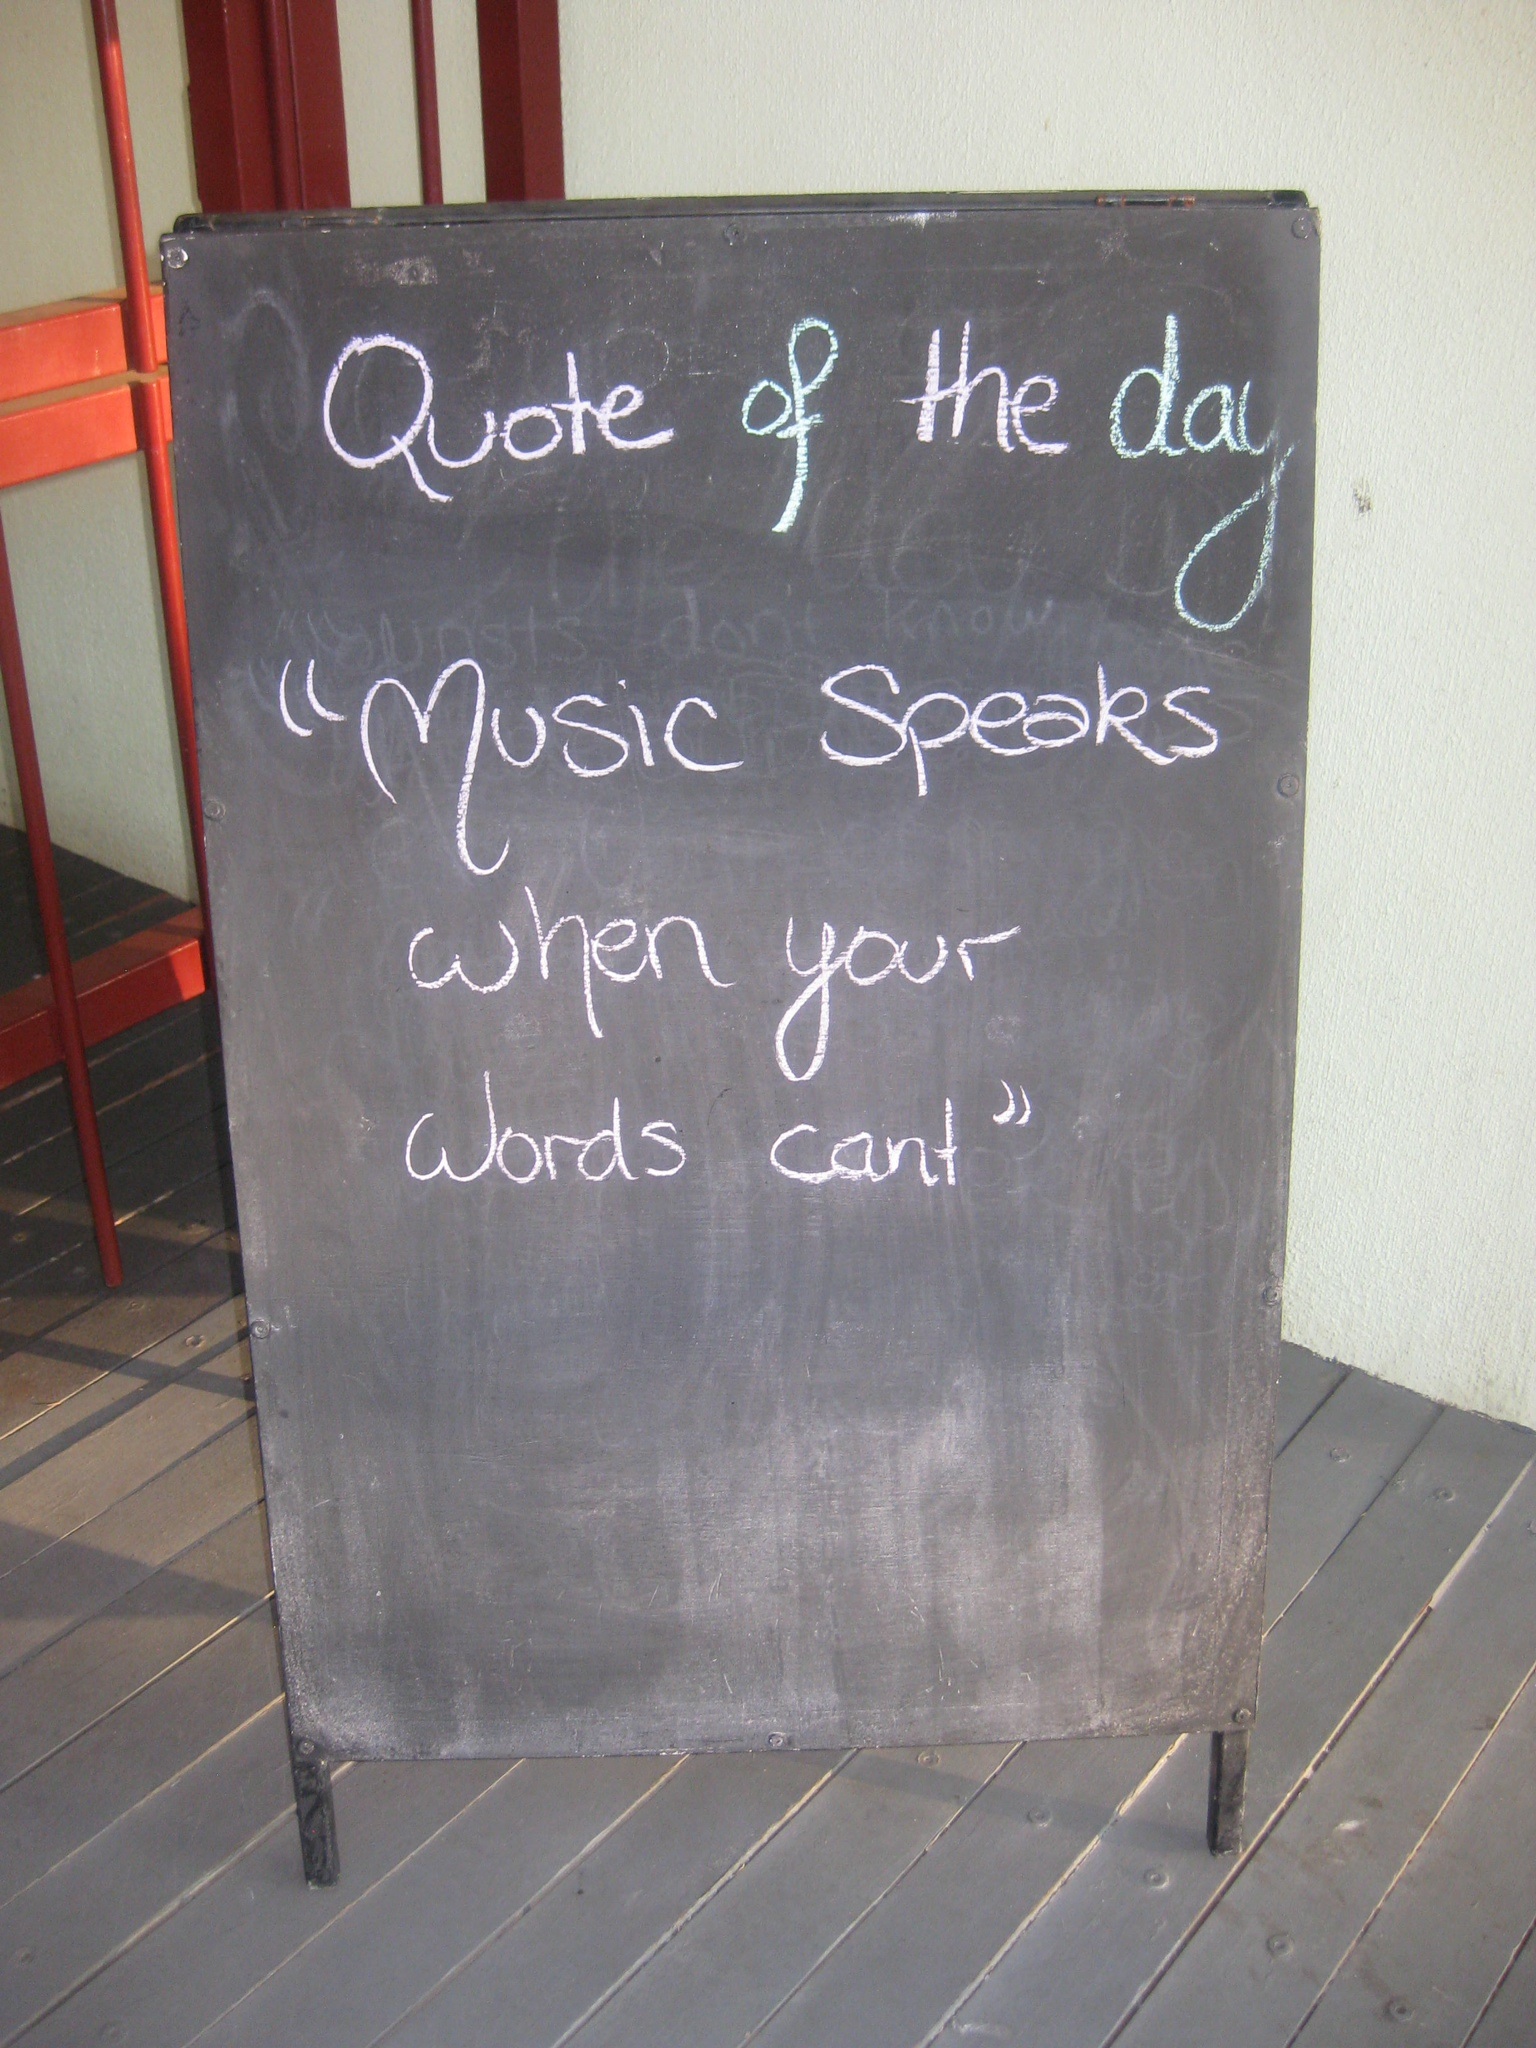 Quote of the day
"Music Speaks
when your
words cant"